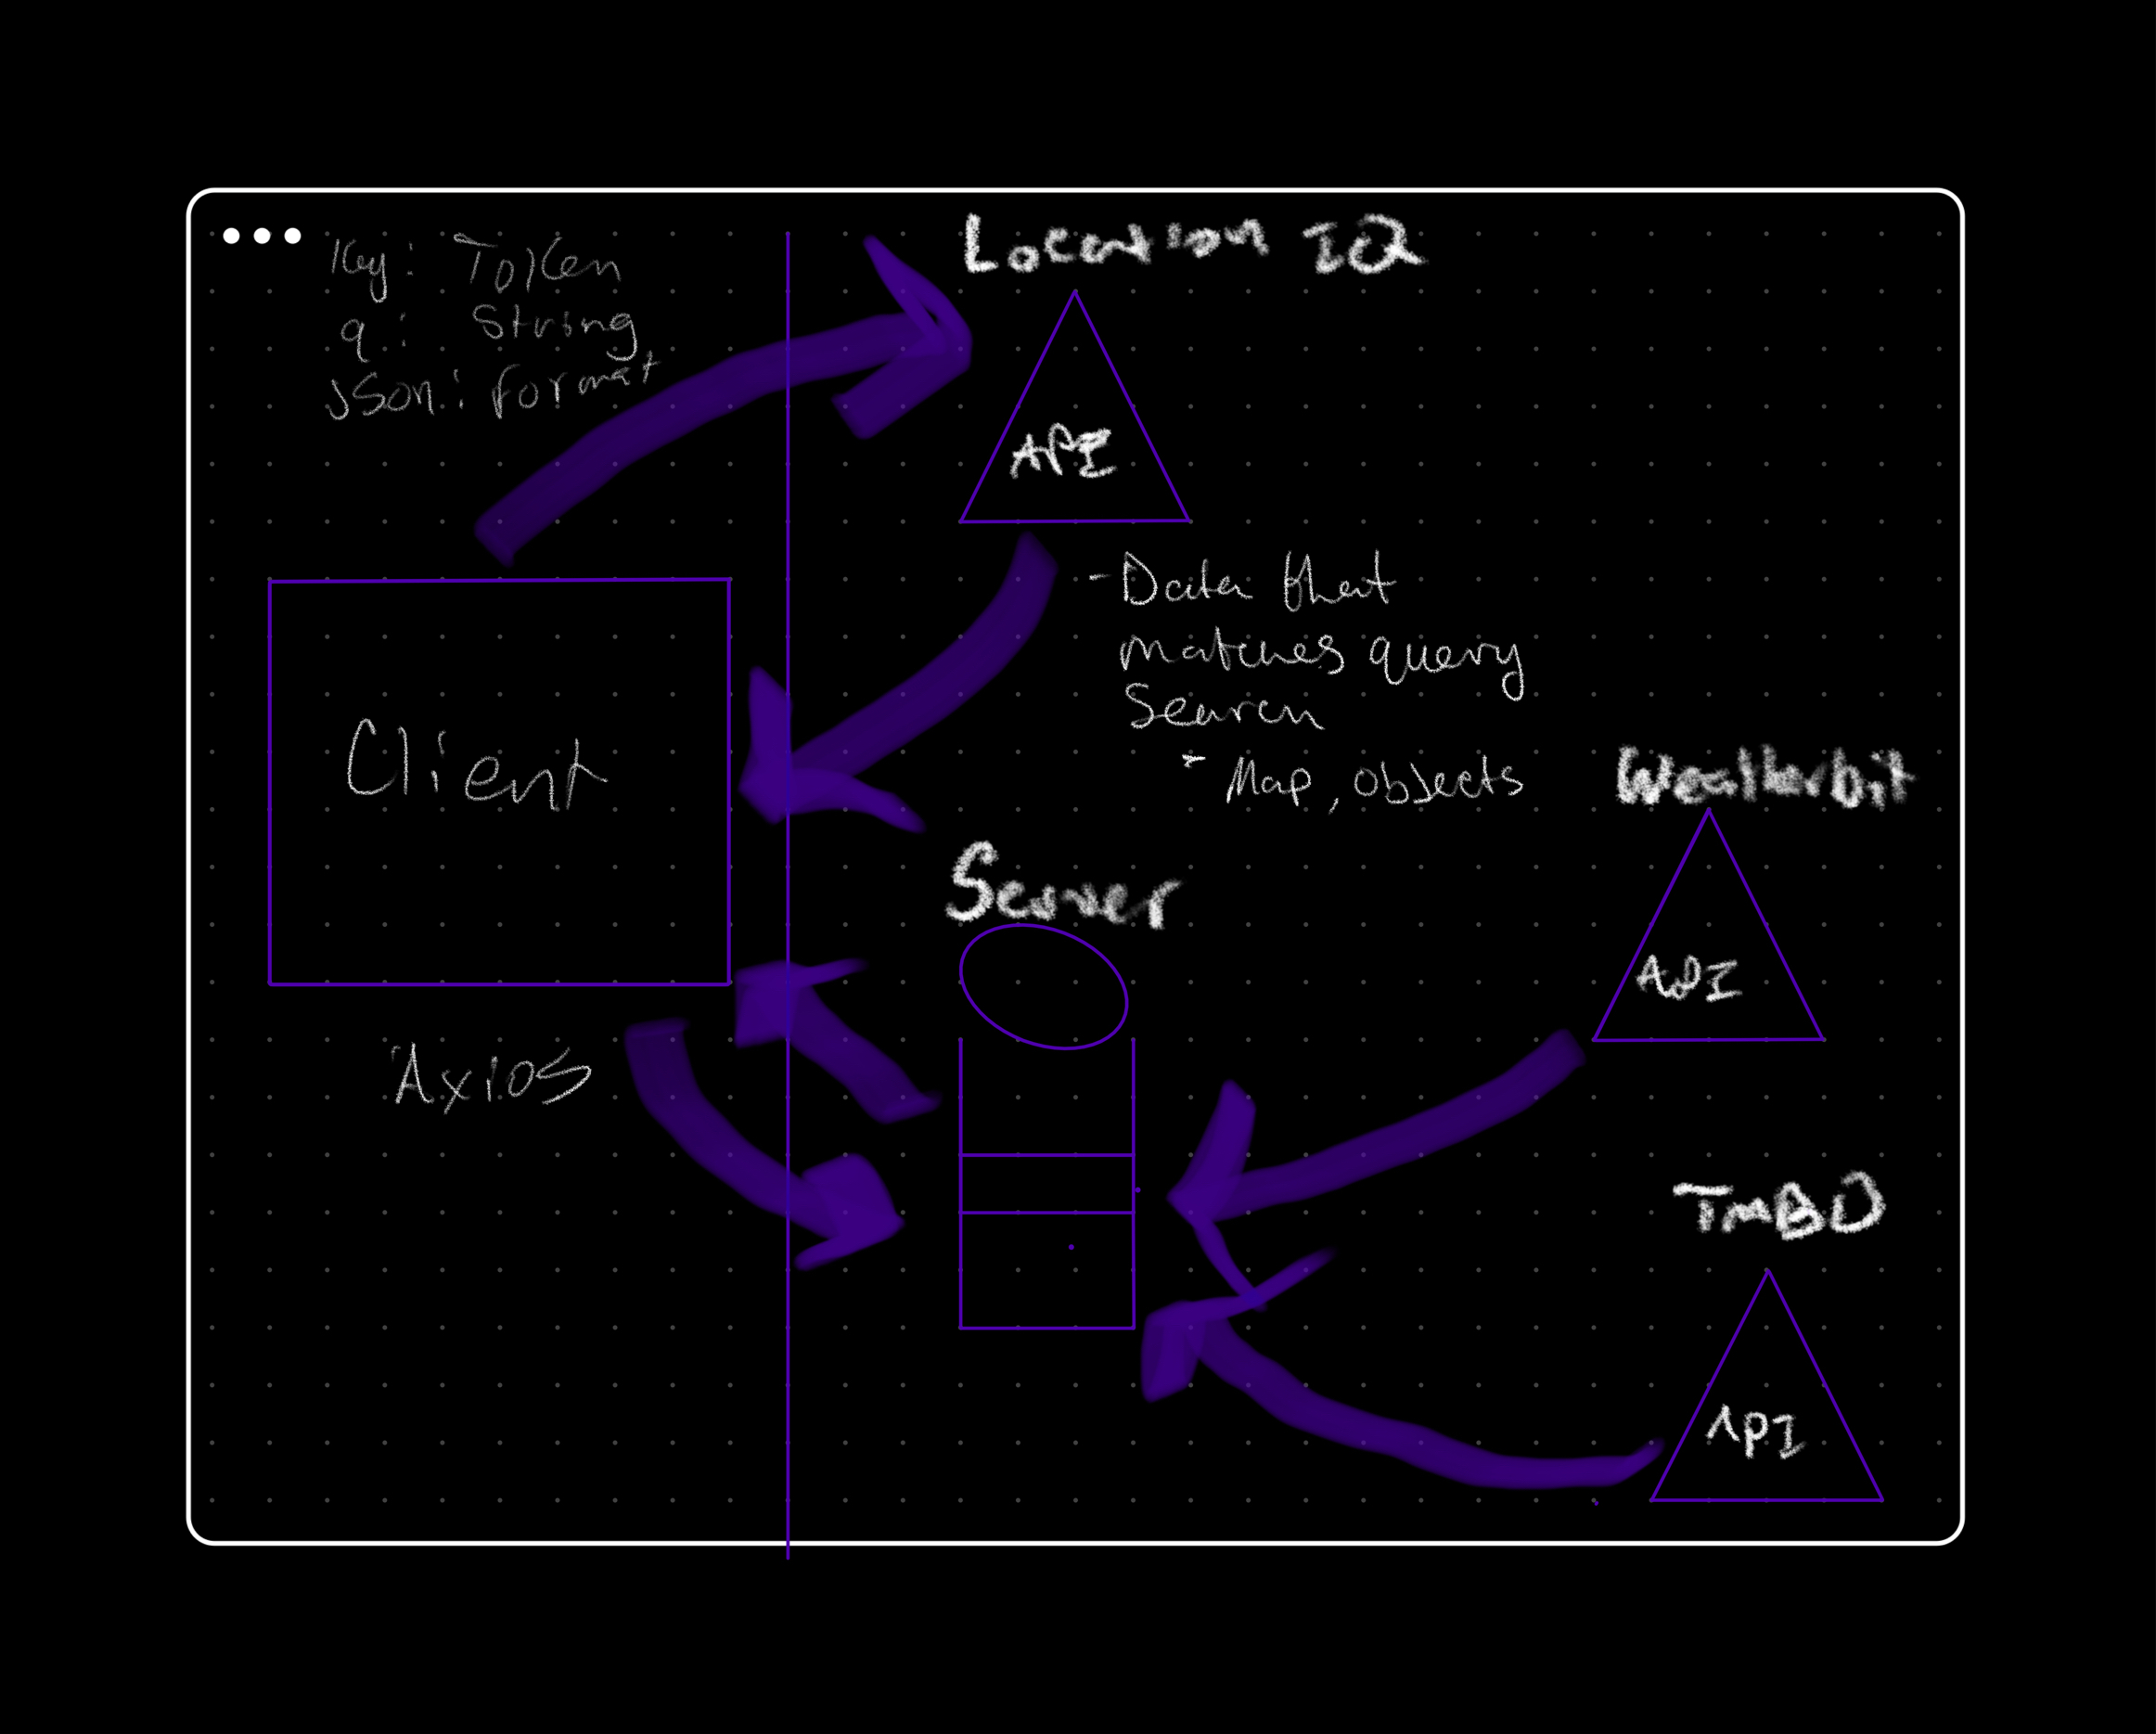 Key: Token
q: String
json: format
Location IQ
API
- Data that
matches query
Search
- Map, objects
Client
Weatherbit
API
Server
Axios
TMBD
API